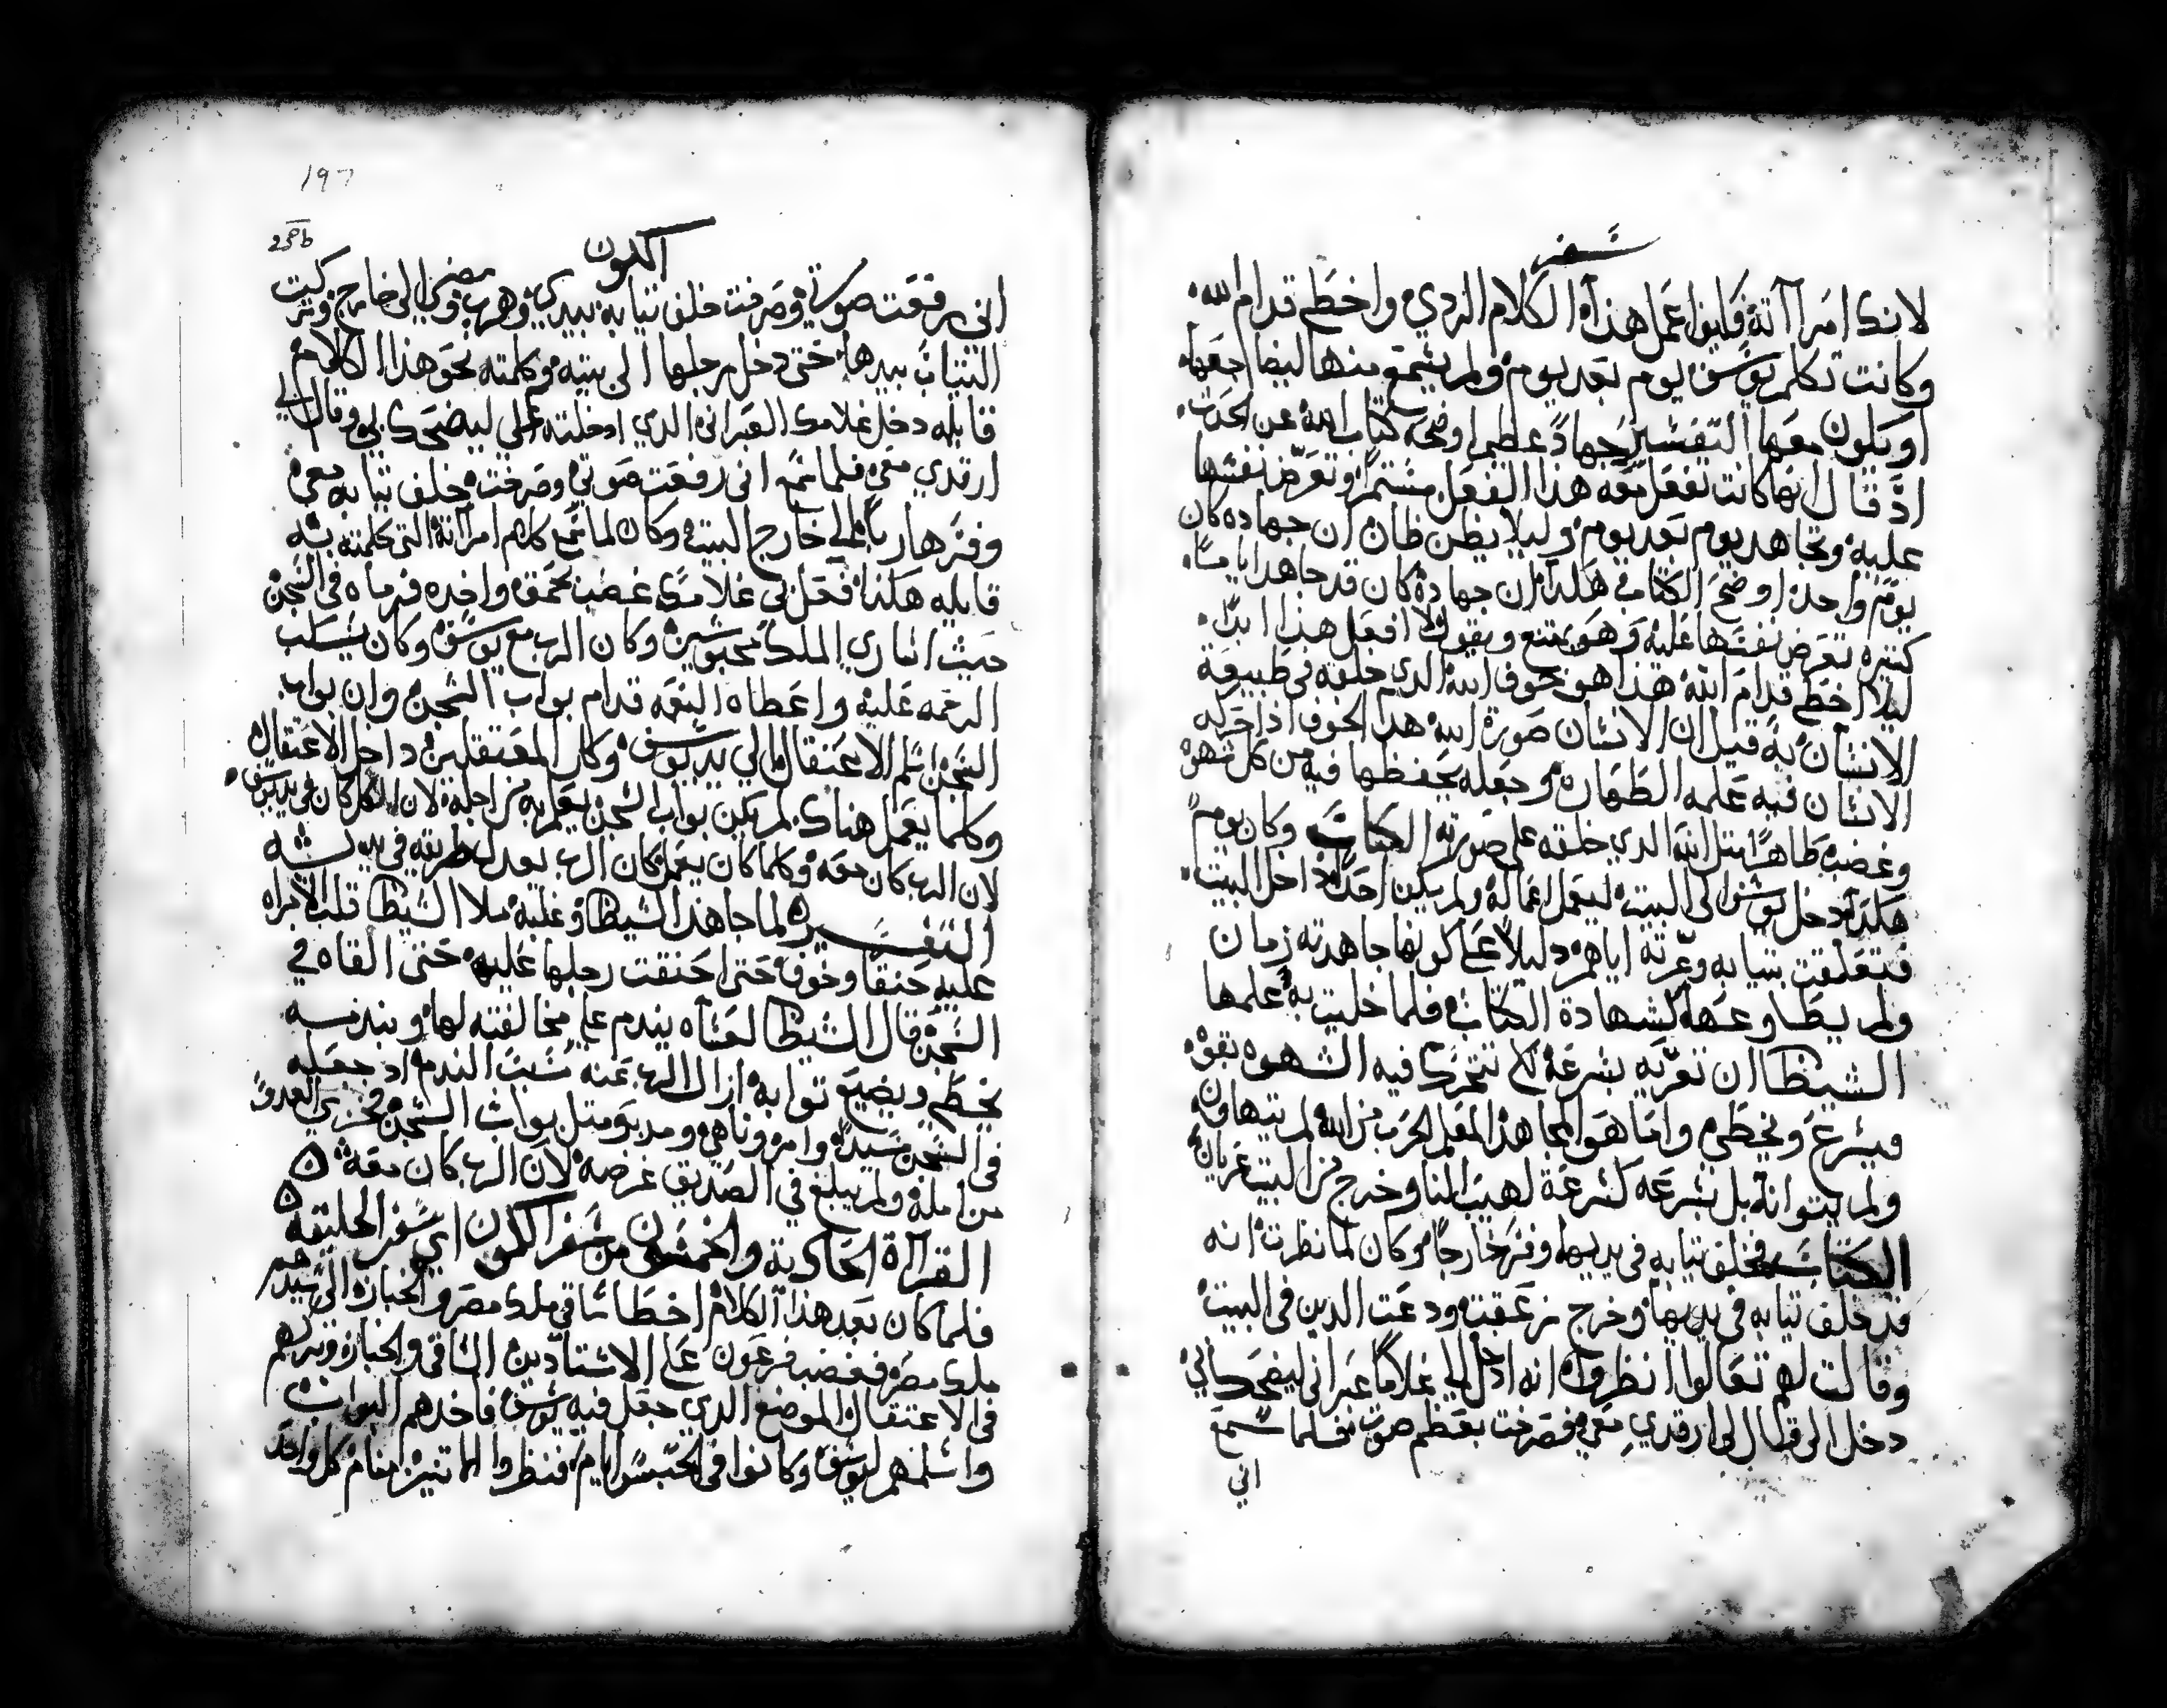 سفر
لانك امراآته فكيف اعمل هذا الكلام الردي واخطي قدام الله
وكانت تكلم يوسف يوم بعد يوم ولم يسمع منها ليضاجعها
او يكون معها التفسير جهادً عظيم اوضحه كتاب الله عن الحدث
اذ قال انها كانت تفعل معه هذا الفعل مستمرًا وتعرّض نفسها
عليه وتجاهد يوم بعد يوم وليلا يظن ظان ان جهاده كان
يومً واحد اوضح الكتاب هكذا ان جهاده كان قد جاهد اياماً
كتيره تعرض نفسها عليه وهو يمتنع ويقول لا افعل هذا ابدًا
ليلا اخطي قدام الله هذا هو خوف الله الدي خلقه في طبيعة
الانسان به قيل ان الانسان صورة الله هدا الخوف اذا حركه
الانسان فيه علمه الطهاره وجعله يحفظها فيه من كل شهوه
وغضب طاهرًا متل الله الدي خلقه على صورته الكتاب وكان يومً
هكذا دخل يوسف الى البيت ليعمل اعماله ولم يكن احدًا داخل البيت
فتعلقت بتيابه وعرّته اياهم دليلاً على كونها جاهدته زمان
ولم يطاوعها كشهادة الكتاب فلما خليت به علمها
الشيطان ان تعرّيه بسرعة لكي تتحرك فيه الشهوه بقوه
فيسرع ويخطي واما هو المجاهد المعلم الحرب من الله لم يتهاون
ولم يتوانا بل بسرعه كسرعة لهيب النار خرج من البيت عريان
الكتاب فخلف تيابه في يديها وفر خارجاً وكان لما نظرت انه
قد خلف تيابه في يديها وخرج زعقت ودعت الدين في البيت
وقالت لهم تعالوا انظروا انه ادخل الي غلاماً عبراني ليضحك بي
دخل الي قال لي ارقدي معي فصرخت بعظم صوتي فلما سمع
اني
197
الكون
اني رفعت صوتي وصرخت خلف تيابه بيدي وهرب ومضى الى خارج وتركت
التياب بيدها حتى دخل رجلها الى بيته وكلمته نحو هذا الكلام
قايله دخل غلامك العبراني الدي ادخلته الي ليضحك بي وقال لي
ارقدي معي فلما سمع اني رفعت صوتي وصرخت خلف تيابه معي
وفر هارباً الى خارج البيت وكان لما سمع كلام امراته التي كلمته به
قايله هكذا فعل بي غلامك غضب بحمق واخده فرماه في السجن
حيث اساري الملك محبوسين وكان الرب مع يوسف وكان يسكب
الرحمه عليه واعطاه النعمه قدام بواب السجن وان بواب
السجن اسلم الاعتقال الي يد يوسف وكل المعتقلين داخل الاعتقال
وكلما يعمل هناك لم يكن بواب السجن يعلم به من اجله لان الكل كان في يد يوسف
لان الرب كان معه وكلما كان يعمل كان الرب يعدل طريقه في يديه
التفسير لما جاهد الشيطان وغلبه ملا الشيطان قلب الامراه
عليه حنقا وخوف حتى احنقت رجلها عليه حتى القاه في
السجن قال الشيطان لعساه يندم على مخالفته لها وبندمه
يخطي ويضيع توابه ازال الرب عنه سبب الندم اد جعله
في السجن سيدًا وامر وناهي ومدبر متل بواب السجن فخزي العدوً
من امله ولم يبلغ في الصديق غرضه لان الرب كان معه
القراة الحادية والخمسون من سفر الكون اي سفر الخليقه
فلما كان بعد هذا الكلام اخطا ساقي ملك مصر والخباز الى سيدهم
ملك مصر فغضب فرعون على الاستادين الساقي والخباز وتركهم
في الاعتقال الموضع الدي جعل فيه يوسف فاخدهم البواب
واسلمهم ليوسف وكانوا في الحبس ايام فنظروا الاتنين منام كل واحد